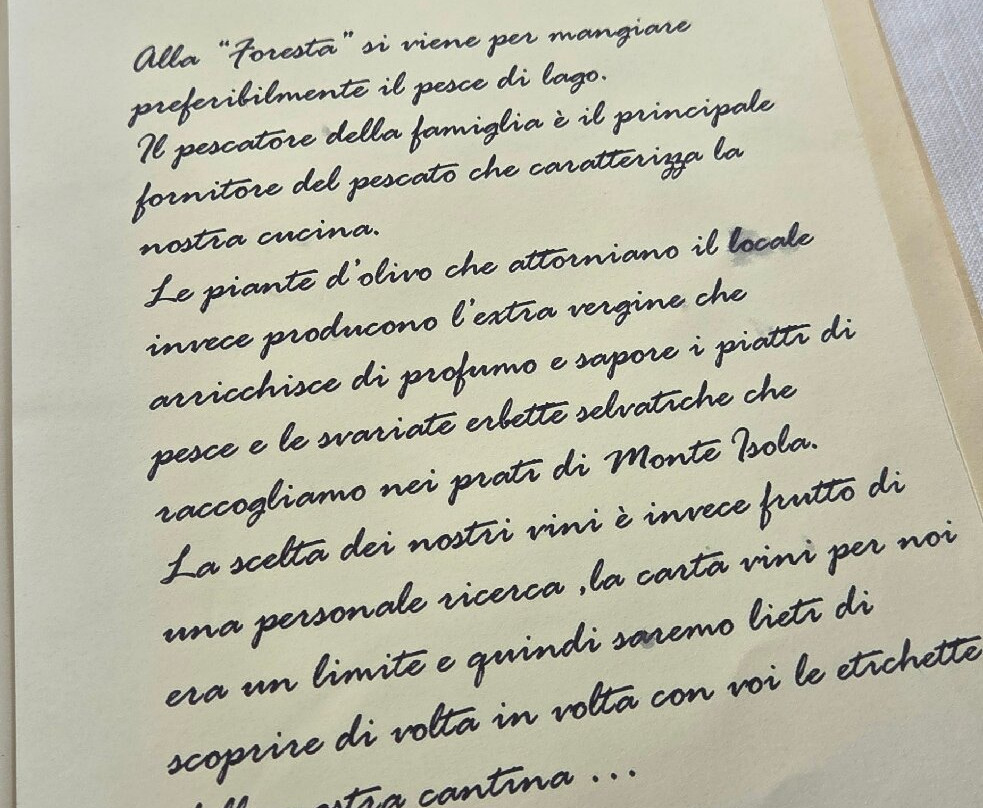 Alla "Foresta" si viene per mangiare
preferibilmente il pesce di lago.
Il pescatore della famiglia è il principale
fornitore del pescato che caratterizza la
nostra cucina.
Le piante d'olivo che attorniano il locale
invece producono l'extra vergine che
arricchisce di profumo e sapore i piatti di
pesce e le svariate erbette selvatiche che
raccogliamo nei prati di Monte Isola.
La scelta dei nostri vini è invece frutto di
una personale ricerca ,la carta vini per noi
era un limite e quindi saremo lieti di
scoprire di volta in volta con voi le etichette
della nostra cantina ...